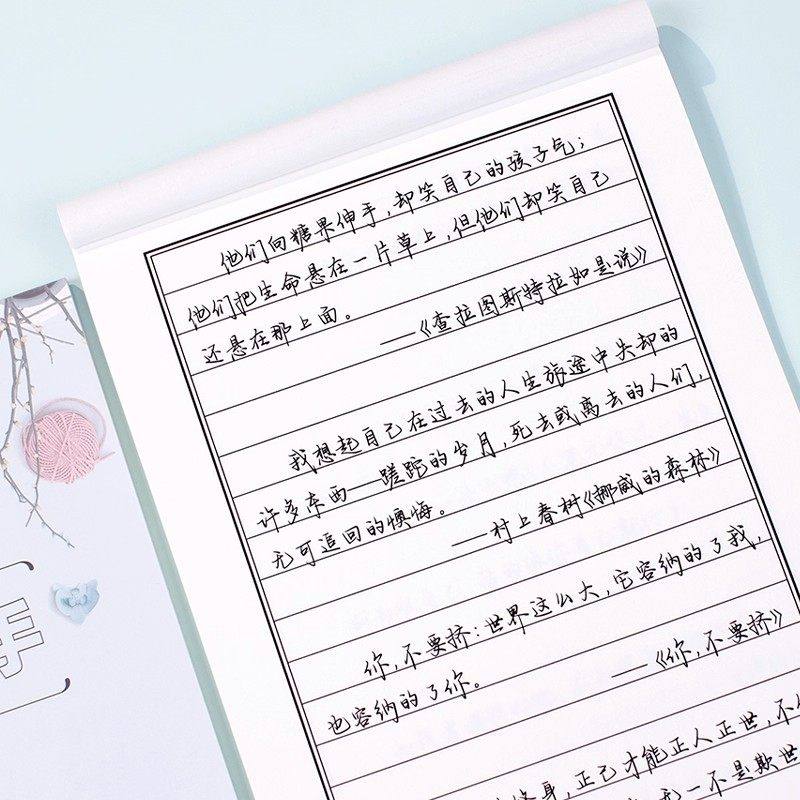 他们向糖果伸手，却笑自己的孩子气；
他们把生命悬在一片草上，但他们却笑自己
还悬在那上面。
——《查拉图斯特拉如是说》
我想起自己在过去的人生旅途中失却的
许多东西——蹉跎的岁月，死去或离去的人们，
无可追回的懊悔。
——村上春树《挪威的森林》
你，不要挤：世界这么大，它容纳的了我，
也容纳的了你。
——《你，不要挤》
修身，正己才能正人正世，不
无一不是欺世